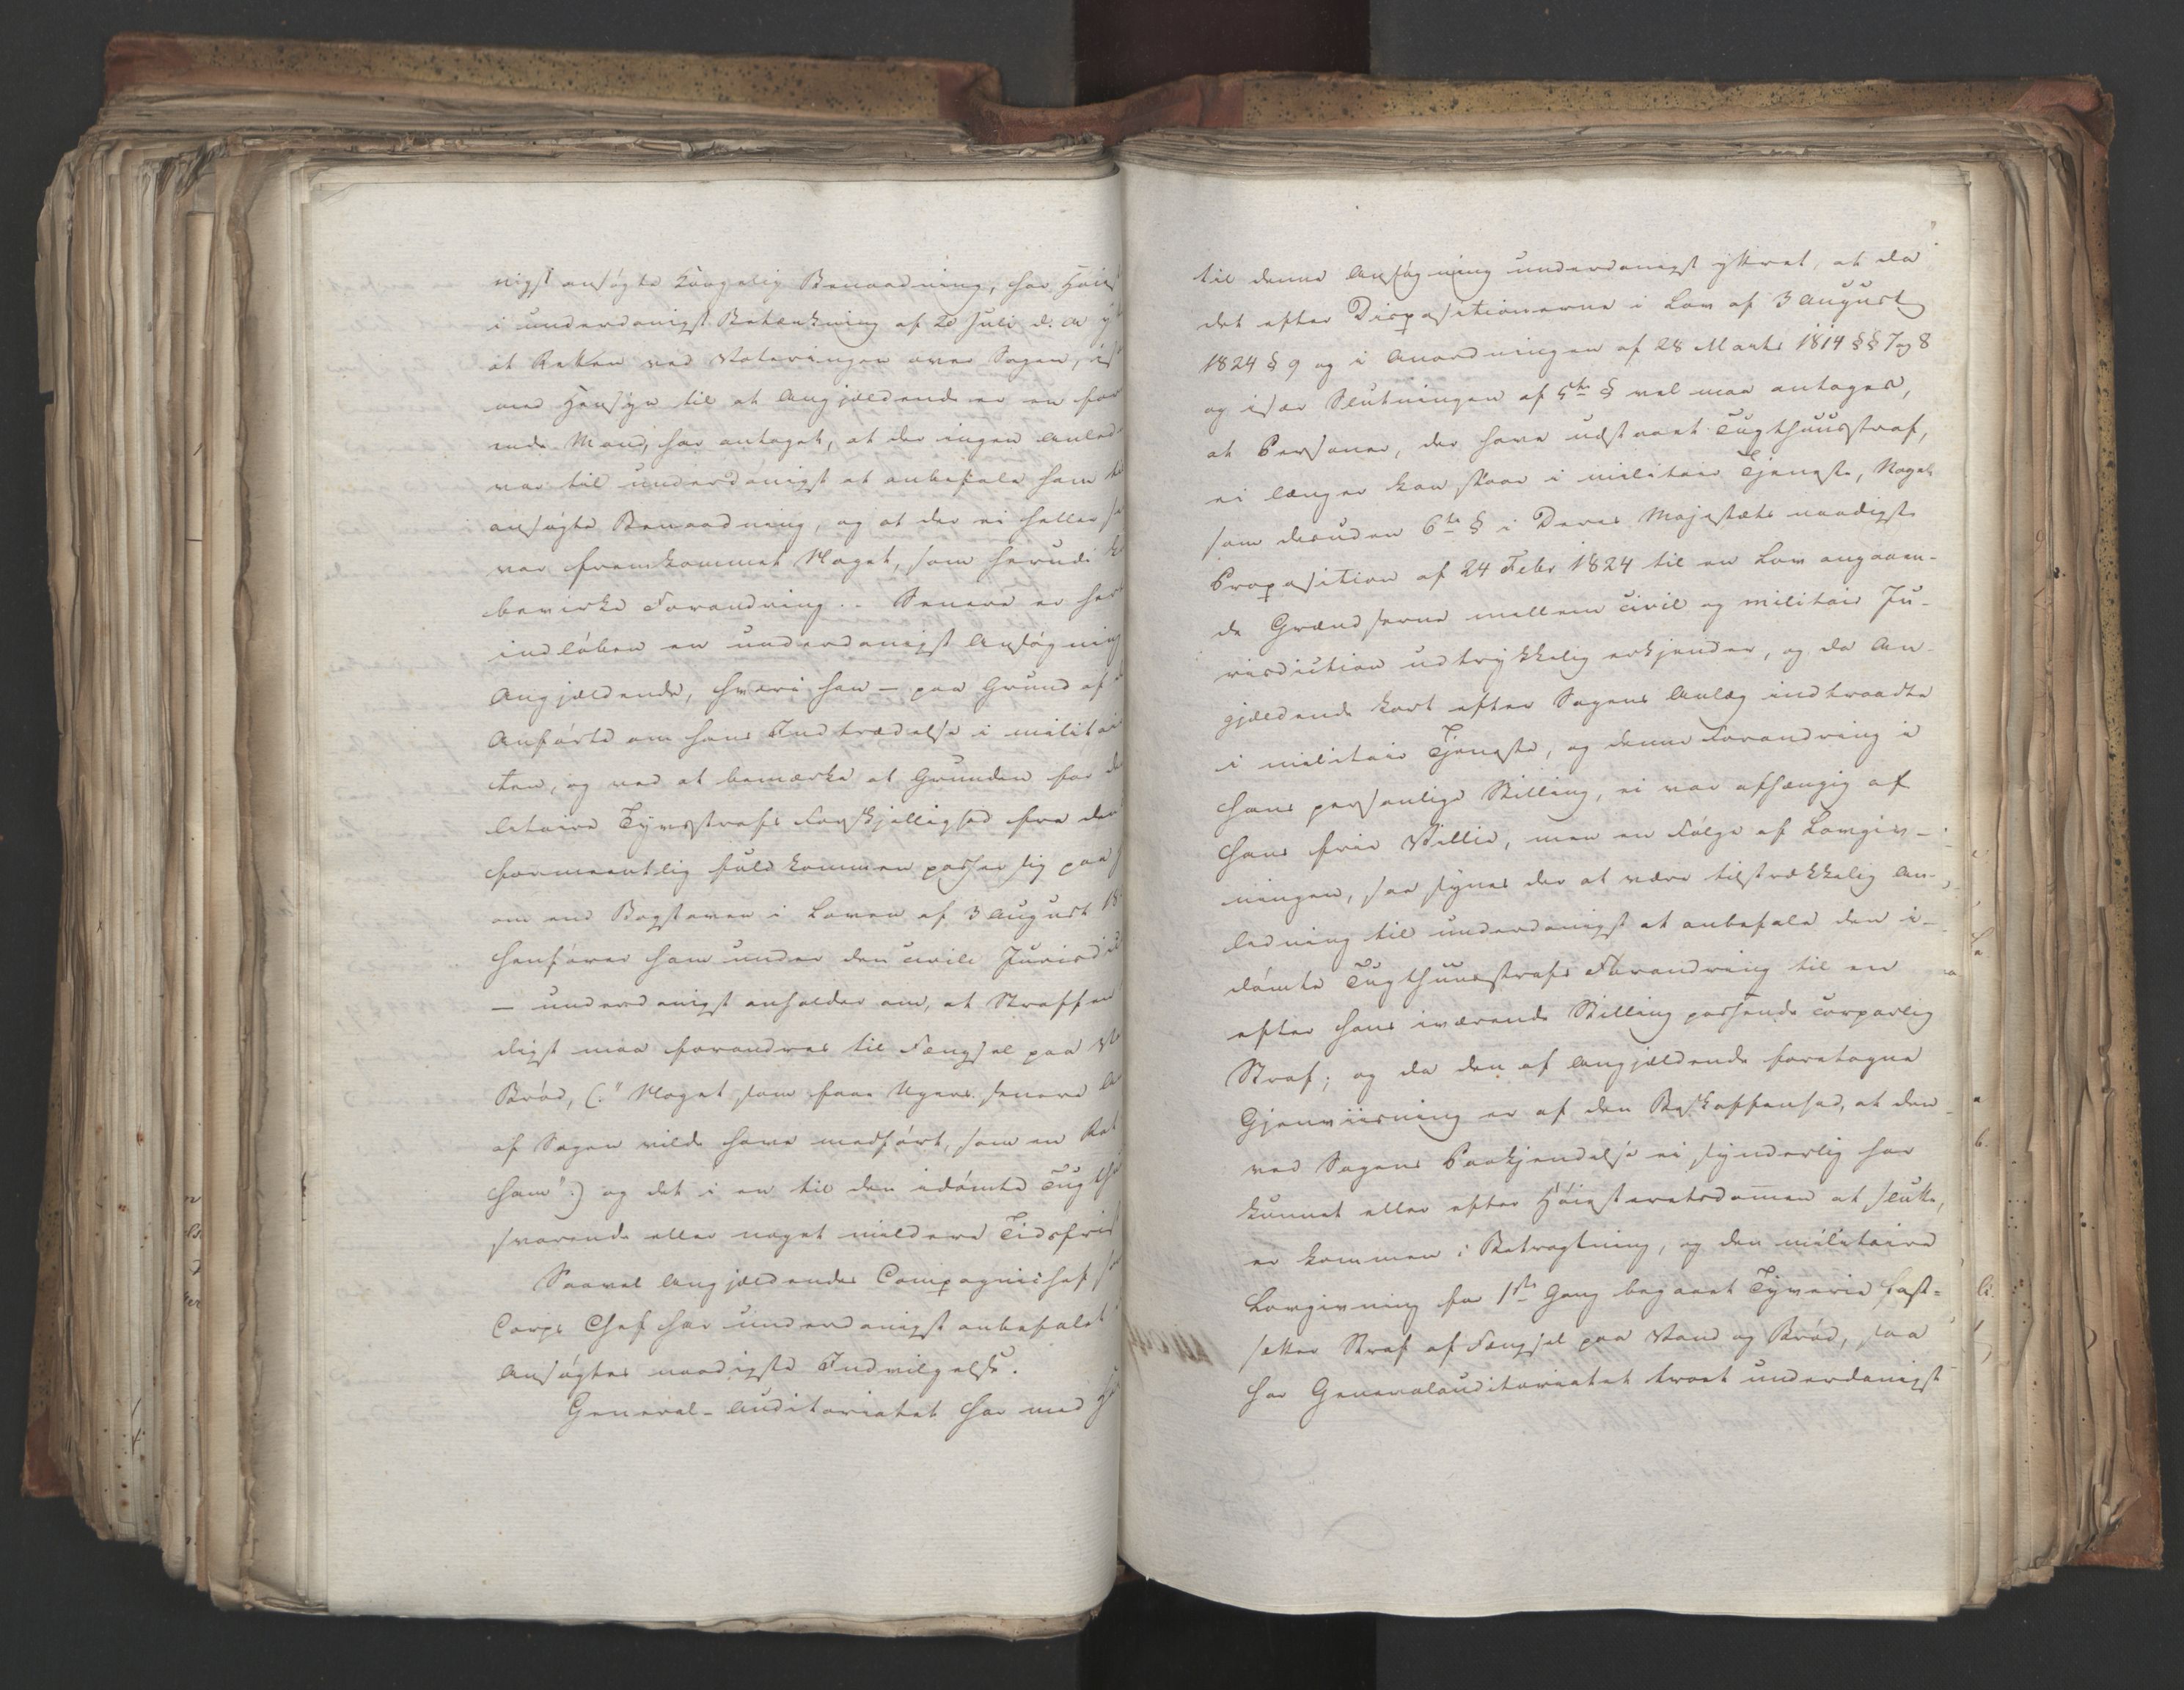 nigst ansøgte Kongelig Benaadning, har Høies
i underdanigst Betænkning af 20 Juli d. A. y
at Retten ved Voteringen over Sagen, is
med Hensyn til at Angjældende er en for
ende Mand, har antaget, at der ingen Anled
var til underdanigst at anbefale ham til
ansøgte Benaadning, og at der ei heller se
var fremkommet Noget, som herudi k
bevirke Forandring. Senere er her
indløben en underdanigst Ansøgning
Angjældende, hvori han – paa Grund af d
Anførte om hans Indtrædelse i militai
sten, og ved at bemærke at Grunden for de
litaire Tyvsstrafs Forskjellighed fra den
formeentlig fuldkommen passer sig paa h
om end Bogstaven i Loven af 3 August 18
henfører ham under den civile Jurisdic
– underdanigst anholder om, at Straffen
digst maa forandres til Fængsel paa Va
Brød, (:" Noget som faae Ugers senere A
af Sagen vilde have medført, som en Ret
ham":) og det i en til den idømte Tugth
svarende eller noget mildere Tidsfrist
Saavel Angjældendes Compagniechef so
Corps Chef har underdanigst anbefalet
Ansøgtes naadigste Indvilgelse.
General-Auditoriatet har med H
til denne Ansøgning underdanigst yttret, at da
det efter Dispositionerne i Lov af 3 August
1824 § 9 og i Anordningen af 28 Marts 1814 §§ 7 og 8
og især Slutningen af 5te § vel maa antages,
at Personer, der have udstaaet Tugthuusstraf,
ei længer kan staae i militair Tjeneste, Noget
som desuden 6te § i Deres Majestæts naadigste
Proposition af 24 Febr 1824 til en Lov angaaen-
de Grændserne mellem civil og militair Ju-
risdiction udtrykkelig erkjender, og da An-
gjældende kort efter Sagens Anlæg indtraadte
i militair Tjeneste, og denne Forandring i
hans personlige Stilling, ei var afhængig af
hans frie Villie, men en Følge af Lovgiv-
ningen, saa synes der at være tilstrækkelig An-
ledning til underdanigst at anbefale den i-
dømte Tugthuusstrafs Forandring til en
efter hans iværende Stilling passende corporlig
Straf; og da den af Angjældende foretagne
Gjenviisning er af den Beskaffenhed, at den
ved Sagens Paakjendelse ei synderlig har
kunnet eller efter Høiesteretsdommen at slutte,
er kommen i Betragtning, og den militaire
Lovgivning for 1ste Gang begaaet Tyverie fast-
sætter Straf af Fængsel paa Vand og Brød, saa
har Generalauditoriatet troet underdanigst